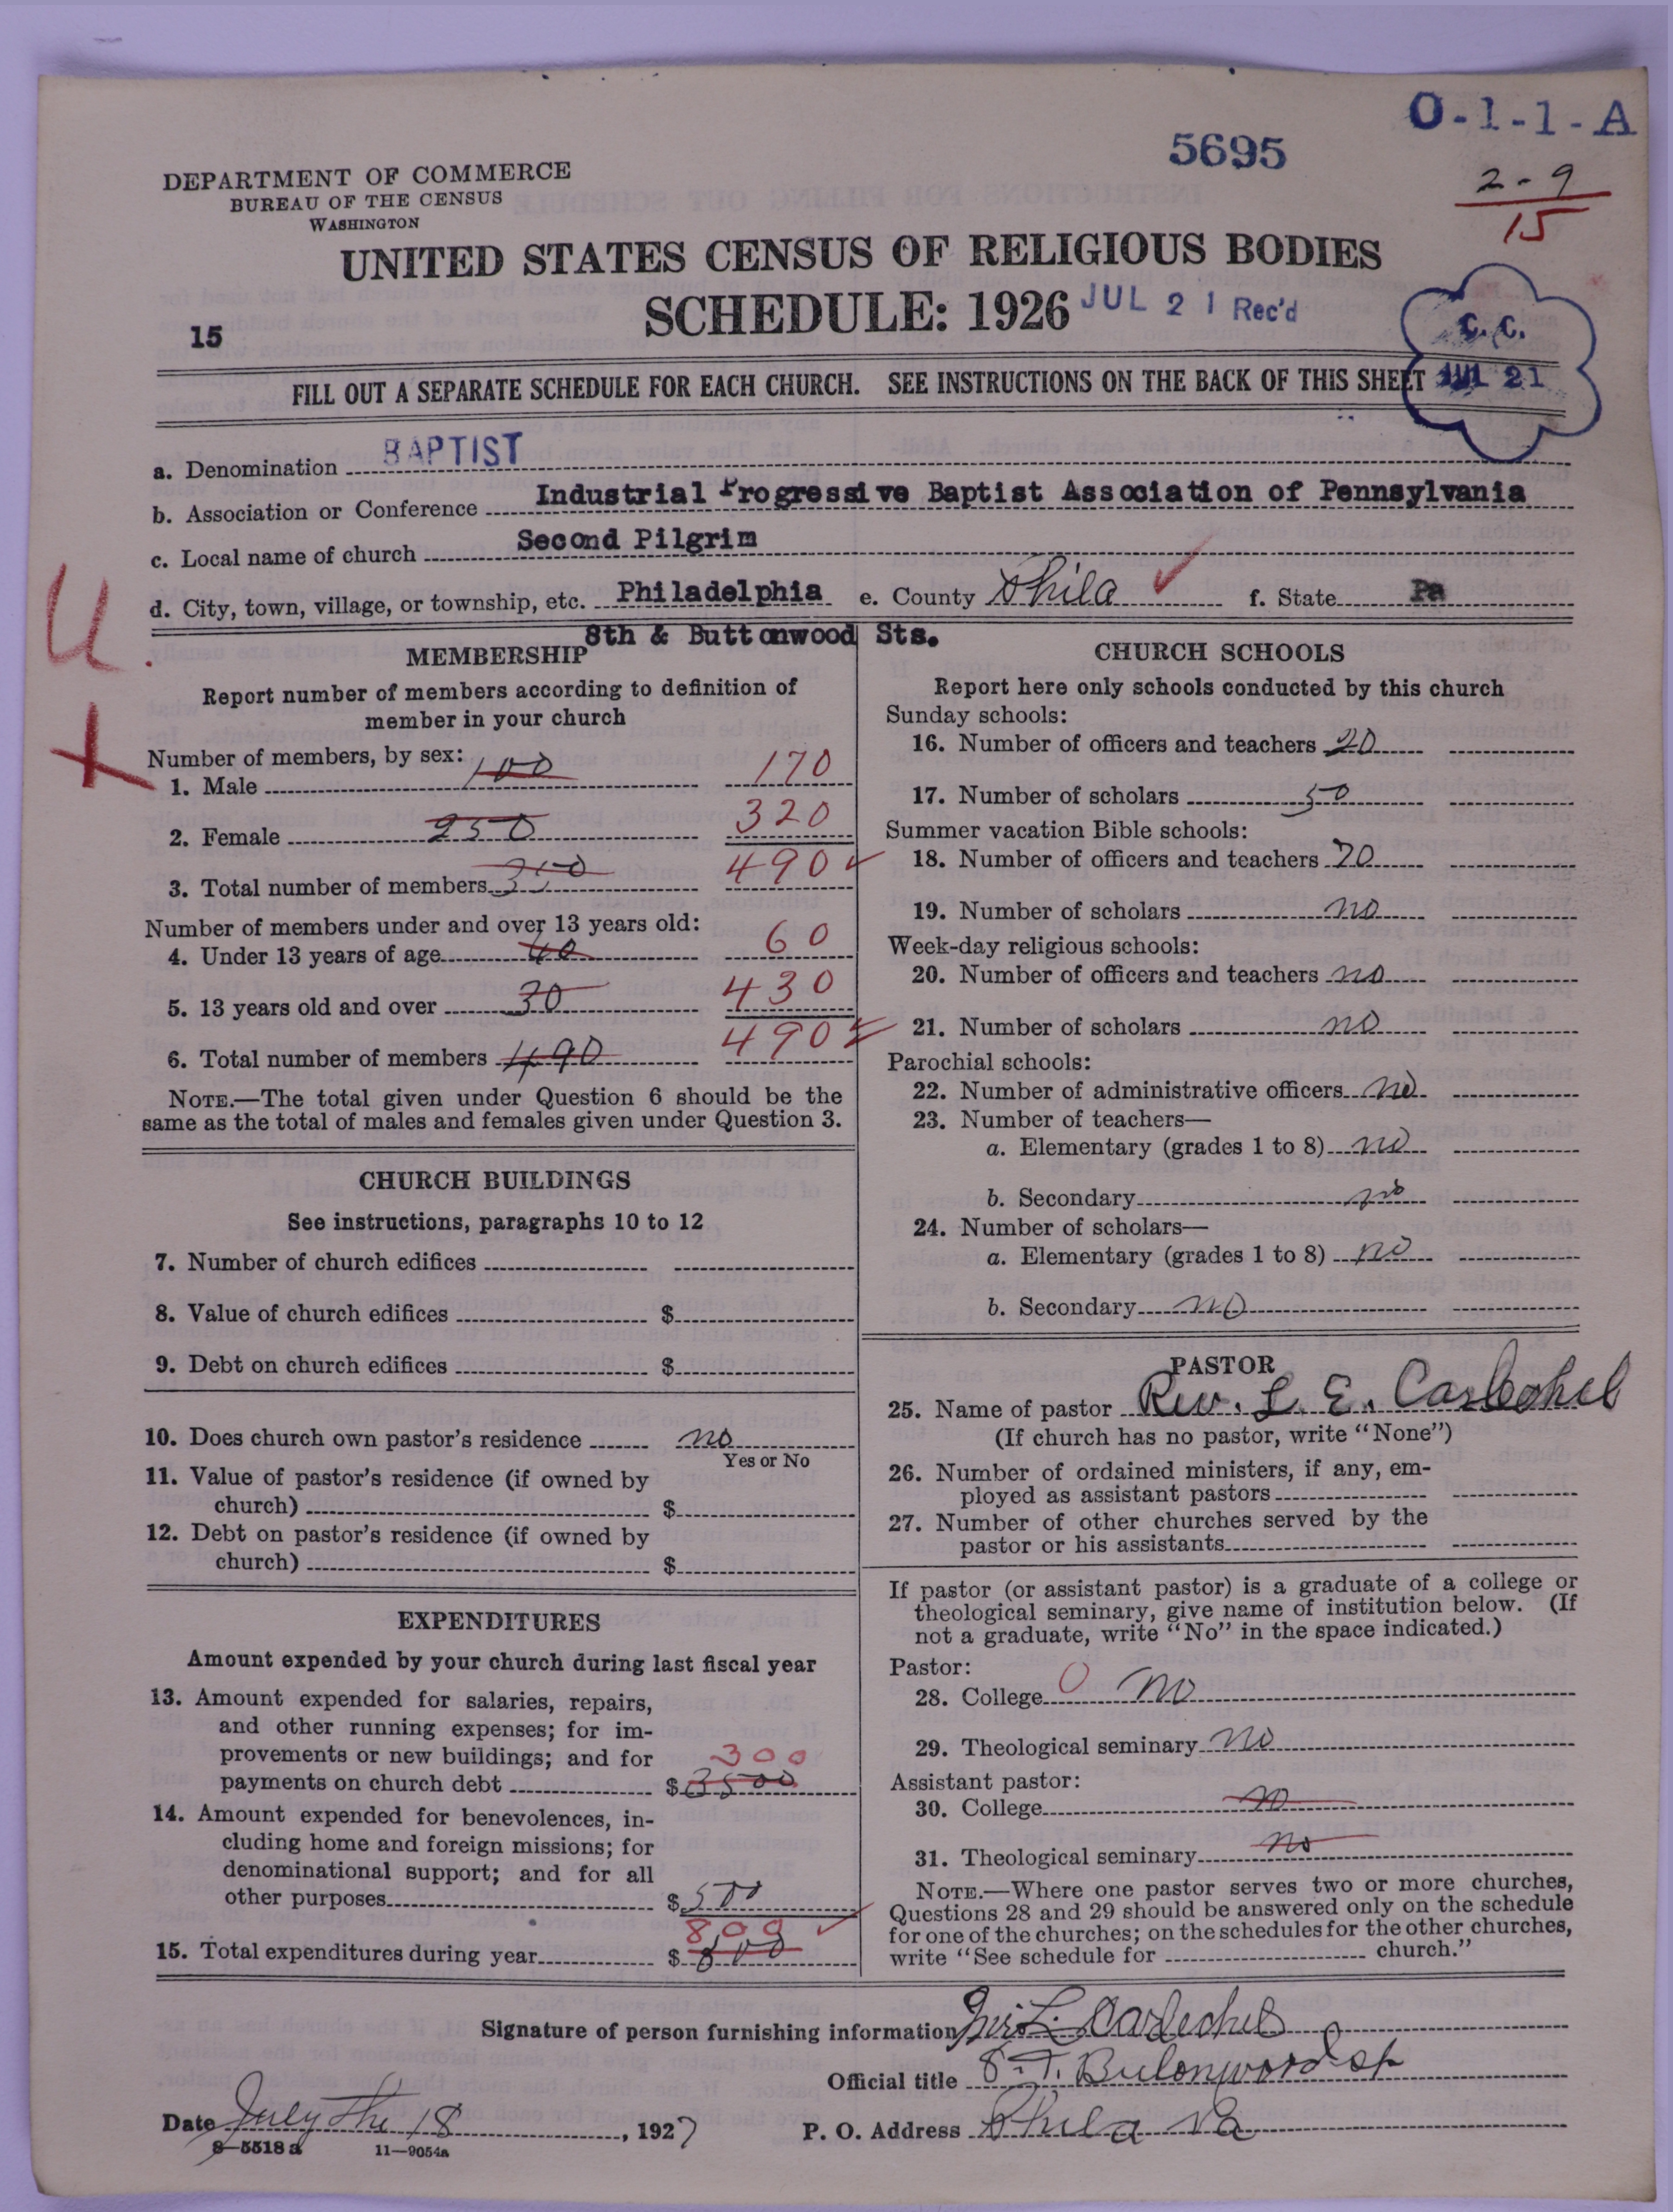 O-1-1-A
5695
2-9
15
DEPARTMENT OF COMMERCE
BUREAU OF THE CENSUS
WASHINGTON
UNITED STATES CENSUS OF RELIGIOUS BODIES
SCHEDULE: 1926
JUL 21 Rec'd
15
C. C.
JUL 21
FILL OUT A SEPARATE SCHEDULE FOR EACH CHURCH. SEE INSTRUCTIONS ON THE BACK OF THIS SHEET
a. Denomination BAPTIST
b. Association or Conference Industrial Progressive Baptist Association of Pennsylvania
c. Local name of church Second Pilgrim
d. City, town, village, or township, etc. Philadelphia e. County Phila f. State Pa
8th & Buttonwood Sts.
U.
X
MEMBERSHIP
Report number of members according to definition of
member in your church
Number of members, by sex:
1. Male 100 170
2. Female 250 320
3. Total number of members 350 490
Number of members under and over 13 years old:
4. Under 13 years of age 40 60
5. 13 years old and over 30 430
6. Total number of members 490 490
NOTE.—The total given under Question 6 should be the
same as the total of males and females given under Question 3.
CHURCH BUILDINGS
See instructions, paragraphs 10 to 12
7. Number of church edifices
8. Value of church edifices $
9. Debt on church edifices $
10. Does church own pastor's residence no
Yes or No
11. Value of pastor's residence (if owned by
church) $
12. Debt on pastor's residence (if owned by
church) $
EXPENDITURES
Amount expended by your church during last fiscal year
13. Amount expended for salaries, repairs,
and other running expenses; for im-
provements or new buildings; and for
300
payments on church debt $ 3500
14. Amount expended for benevolences, in-
cluding home and foreign missions; for
denominational support; and for all
other purposes $ 500
800
15. Total expenditures during year $ 800
CHURCH SCHOOLS
Report here only schools conducted by this church
Sunday schools:
16. Number of officers and teachers 20
17. Number of scholars 50
Summer vacation Bible schools:
18. Number of officers and teachers 20
19. Number of scholars no
Week-day religious schools:
20. Number of officers and teachers no
21. Number of scholars no
Parochial schools:
22. Number of administrative officers no
23. Number of teachers—
a. Elementary (grades 1 to 8) no
b. Secondary no
24. Number of scholars—
a. Elementary (grades 1 to 8) no
b. Secondary no
PASTOR
25. Name of pastor Rev. L. E.
(If church has no pastor, write "None")
26. Number of ordained ministers, if any, em-
ployed as assistant pastors
27. Number of other churches served by the
pastor or his assistants
If pastor (or assistant pastor) is a graduate of a college or
theological seminary, give name of institution below. (If
not a graduate, write "No" in the space indicated.)
Pastor:
28. College 0 no
29. Theological seminary no
Assistant pastor:
30. College no
31. Theological seminary no
NOTE.—Where one pastor serves two or more churches,
Questions 28 and 29 should be answered only on the schedule
for one of the churches; on the schedules for the other churches,
write "See schedule for church."
Signature of person furnishing information
Official title
Date July the 18, 1927
P. O. Address Phila Pa
8-5518a 11-9054a